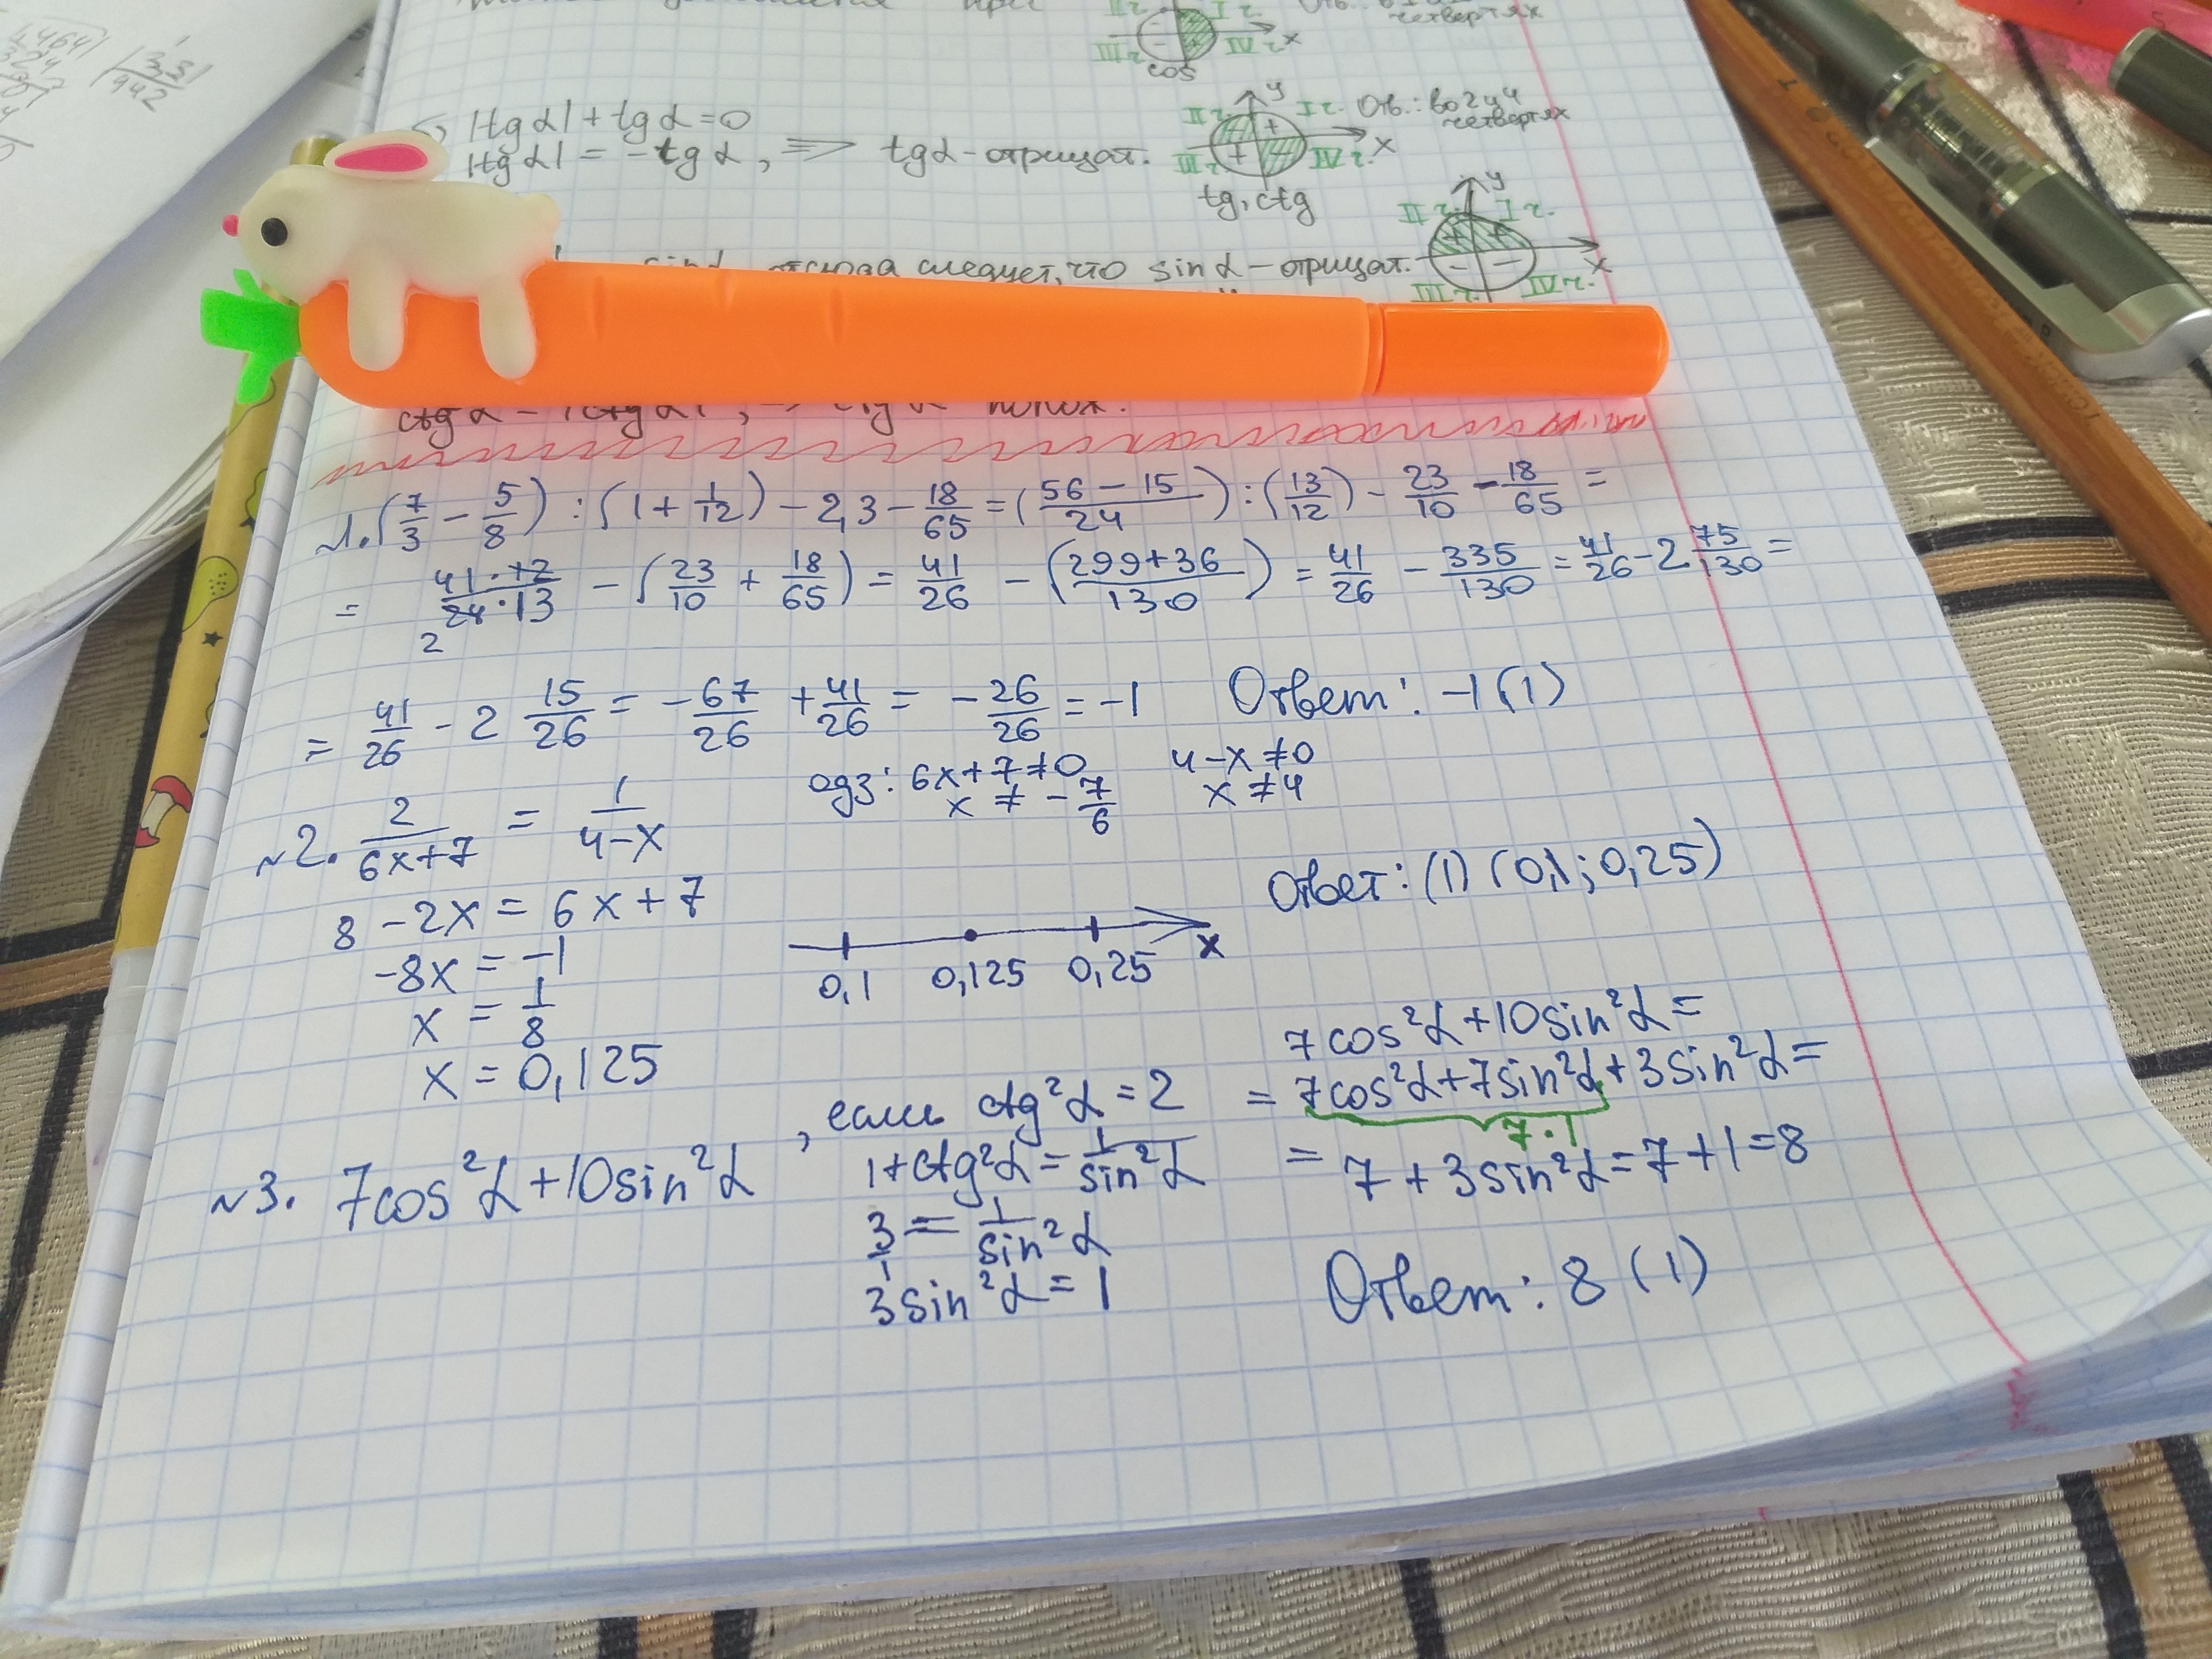 |tg α| + tg α = 0
|tg α| = -tg α, ⟹ tg α - отрицат.
I ч. Отв.: во 2 и 4 четвертях
tg, ctg
cos
sin α отсюда следует, что sin α - отрицат.
№1. (7/3 - 5/8) : (1 + 1/12) - 2,3 - 18/65 = ((56 - 15)/24) : (13/12) - 23/10 - 18/65 =
= (41·12)/(24·13) - (23/10 + 18/65) = 41/26 - ((299+36)/130) = 41/26 - 335/130 = 41/26 - 2 75/130 =
2
= 41/26 - 2 15/26 = -67/26 + 41/26 = -26/26 = -1 Ответ: -1 (1)
№2. 2/(6x+7) = 1/(4-x) одз: 6x+7≠0 4-x≠0
x ≠ -7/6 x ≠ 4
8 - 2x = 6x + 7
-8x = -1
x = 1/8
x = 0,125
0,1 0,125 0,25 x
Ответ: (1) (0,1; 0,25)
№3. 7cos²α + 10sin²α, если ctg²α = 2
1 + ctg²α = 1/sin²α
3/1 = 1/sin²α
3sin²α = 1
7cos²α + 10sin²α =
= 7cos²α + 7sin²α + 3sin²α =
7·1
= 7 + 3sin²α = 7 + 1 = 8
Ответ: 8 (1)